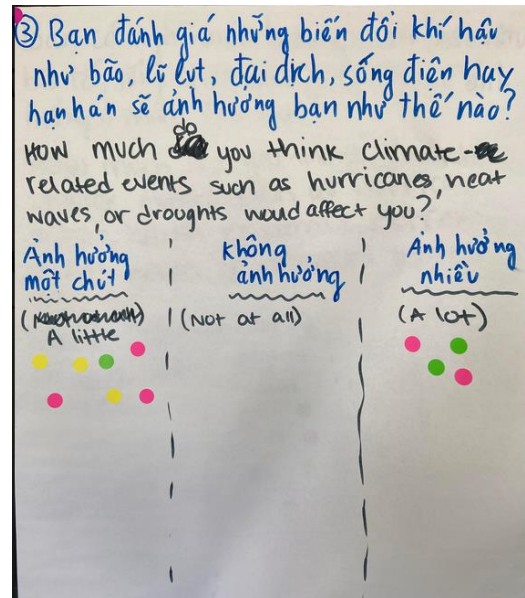 ③ Bạn đánh giá những biến đổi khí hậu
như bão, lũ lụt, đại dịch, sóng điện hay
hạn hán sẽ ảnh hưởng bạn như thế nào?
How much do you think climate-
related events such as hurricanes, heat
waves, or droughts would affect you?
Ảnh hưởng
một chút
(A little
Không
ảnh hưởng
(Not at all)
Ảnh hưởng
nhiều
(A lot)